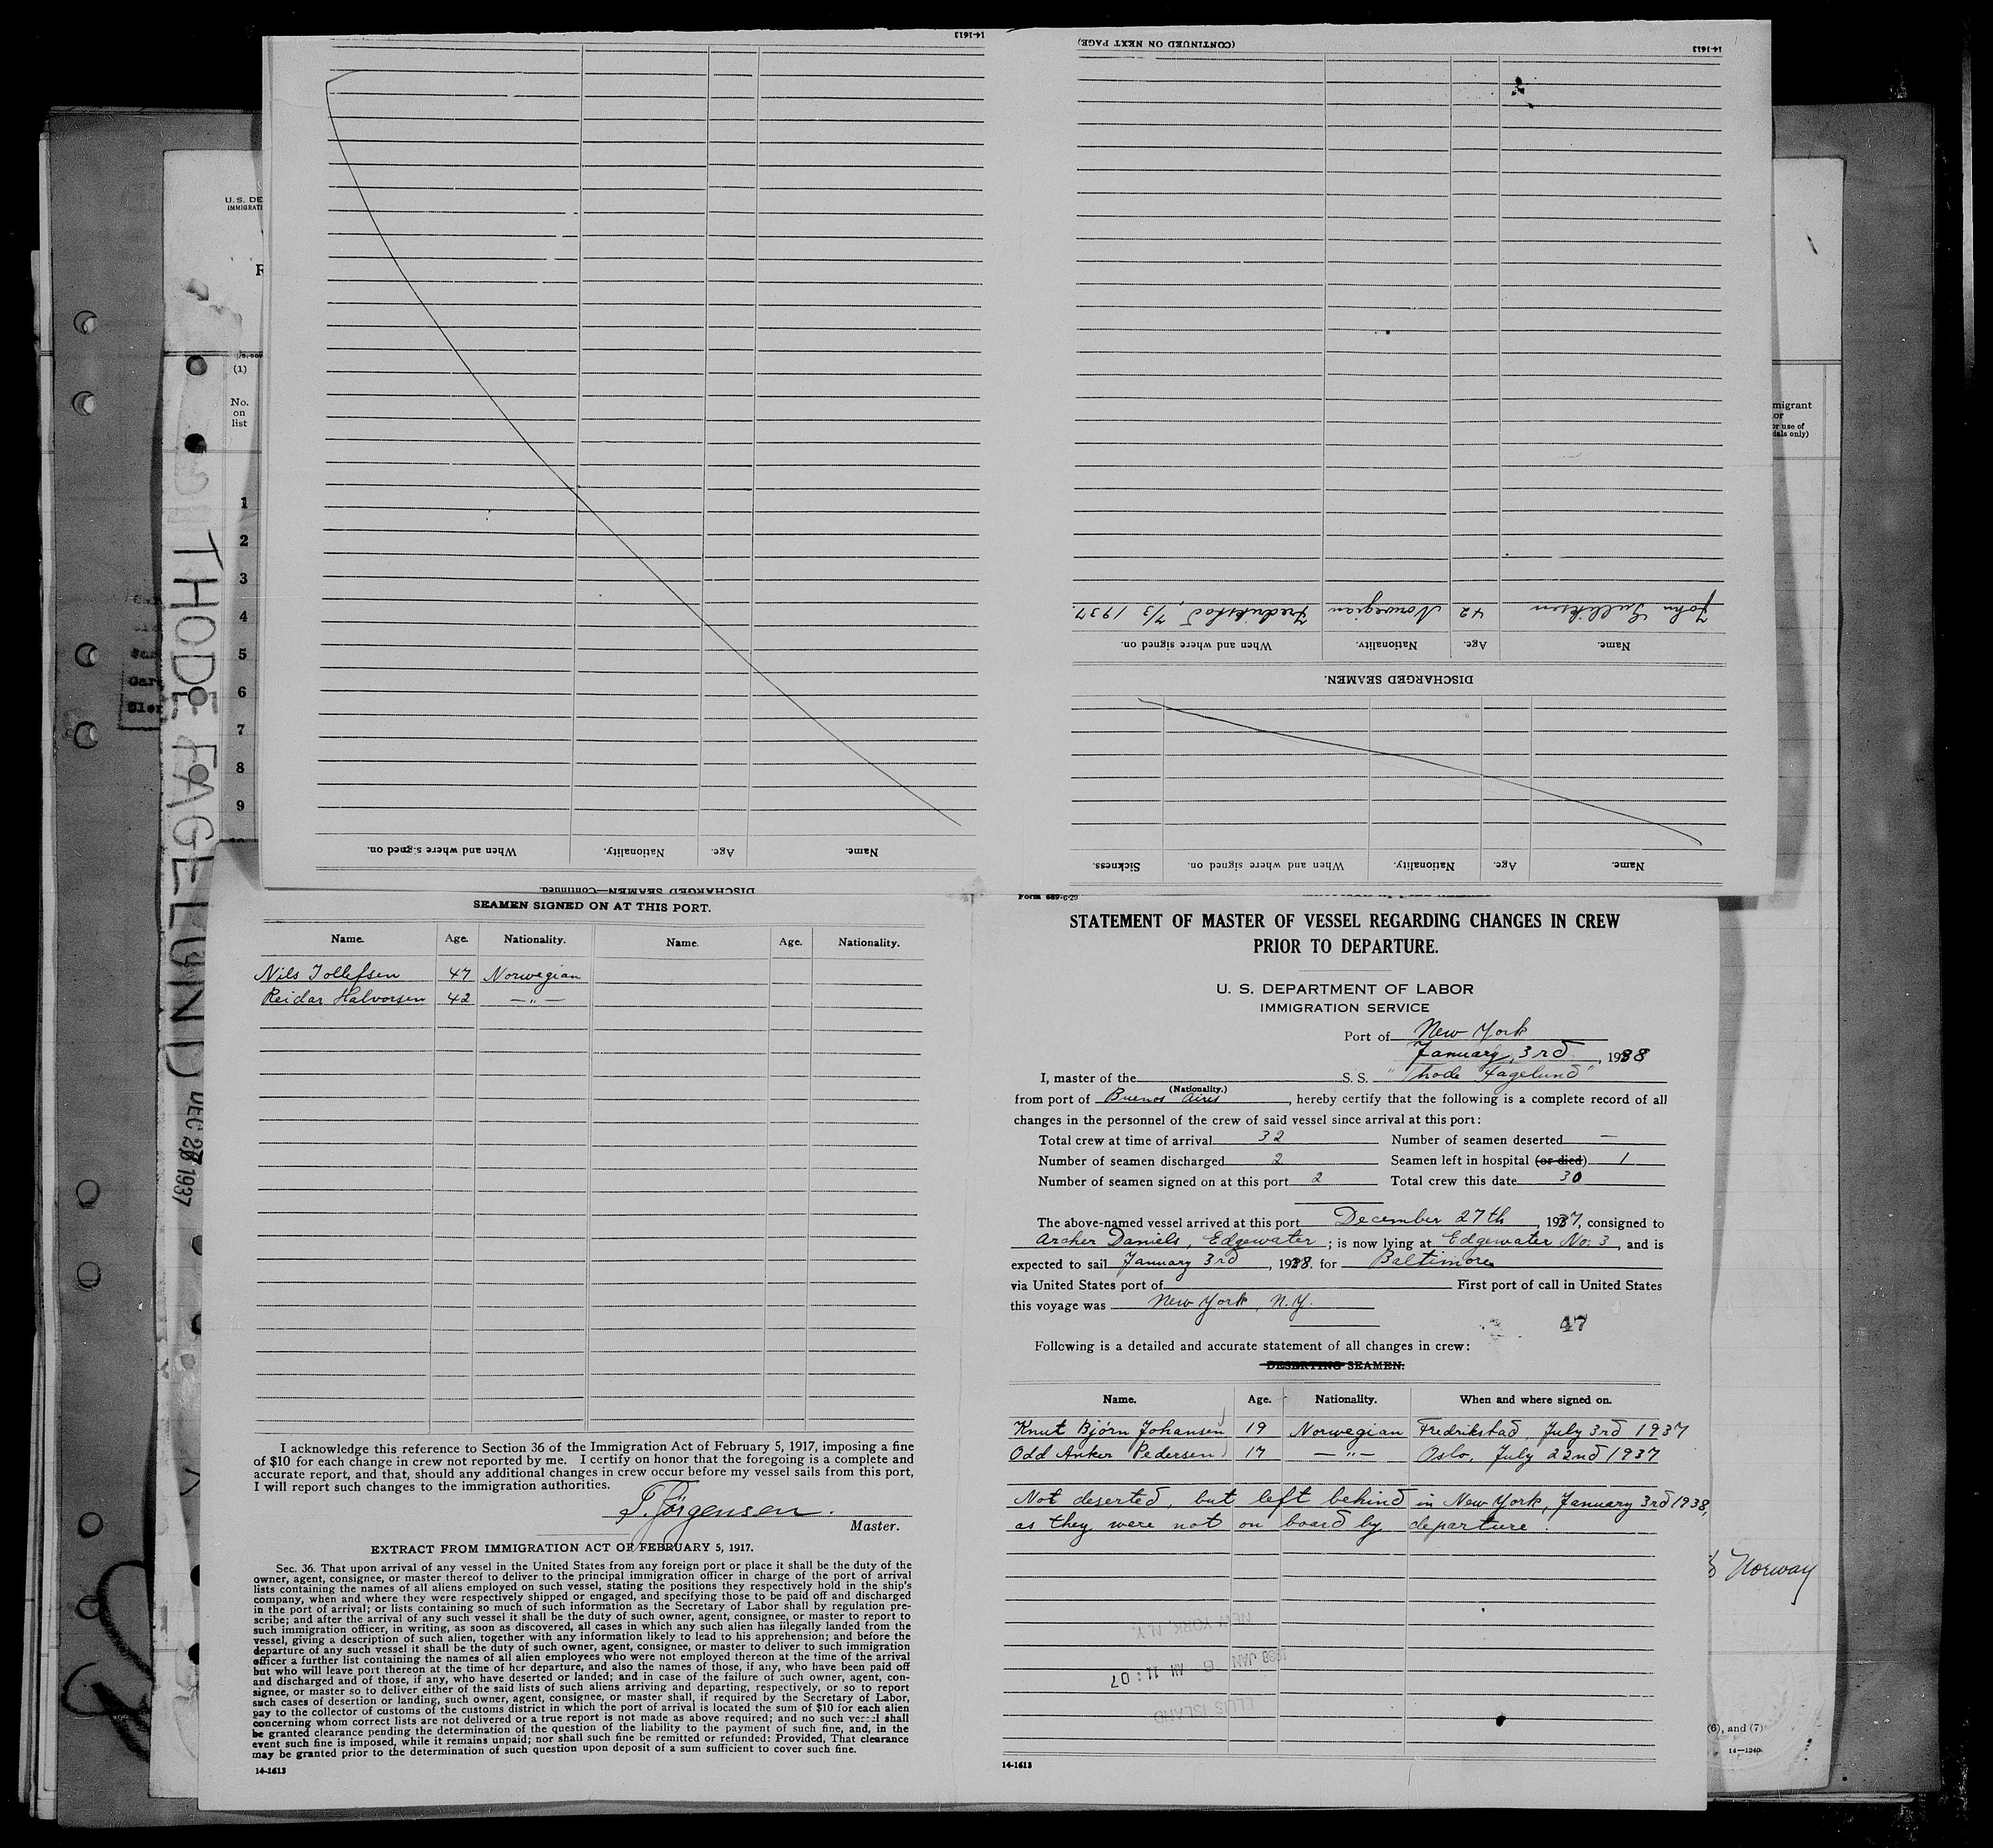 14-1613
(CONTINUED ON NEXT PAGE)
14-1613
U. S. DE
IMMIGRATI
(1)
No.
on
list
1
2
3
4
5
6
7
8
9
THODE FAGELUND DEC 27 1937
migrant
or
or use of
ials only)
John Gulliksen 42 Norwegian Fredrikstad, 7/3 1937.
Name. Age. Nationality. When and where signed on.
DISCHARGED SEAMEN.
Name. Age. Nationality. When and where signed on. Sickness.
Name. Age. Nationality. When and where signed on.
DISCHARGED SEAMEN—Continued.
SEAMEN SIGNED ON AT THIS PORT.
Name. Age. Nationality. Name. Age. Nationality.
Nils Tollefsen 47 Norwegian
Reidar Halvorsen 42 —"—
I acknowledge this reference to Section 36 of the Immigration Act of February 5, 1917, imposing a fine
of $10 for each change in crew not reported by me. I certify on honor that the foregoing is a complete and
accurate report, and that, should any additional changes in crew occur before my vessel sails from this port,
I will report such changes to the immigration authorities.
T. Jörgensen.
Master.
EXTRACT FROM IMMIGRATION ACT OF FEBRUARY 5, 1917.
Sec. 36. That upon arrival of any vessel in the United States from any foreign port or place it shall be the duty of the
owner, agent, consignee, or master thereof to deliver to the principal immigration officer in charge of the port of arrival
lists containing the names of all aliens employed on such vessel, stating the positions they respectively hold in the ship's
company, when and where they were respectively shipped or engaged, and specifying those to be paid off and discharged
in the port of arrival; or lists containing so much of such information as the Secretary of Labor shall by regulation pre-
scribe; and after the arrival of any such vessel it shall be the duty of such owner, agent, consignee, or master to report to
such immigration officer, in writing, as soon as discovered, all cases in which any such alien has illegally landed from the
vessel, giving a description of such alien, together with any information likely to lead to his apprehension; and before the
departure of any such vessel it shall be the duty of such owner, agent, consignee, or master to deliver to such immigration
officer a further list containing the names of all alien employees who were not employed thereon at the time of the arrival
but who will leave port thereon at the time of her departure, and also the names of those, if any, who have been paid off
and discharged and of those, if any, who have deserted or landed; and in case of the failure of such owner, agent, con-
signee, or master so to deliver either of the said lists of such aliens arriving and departing, respectively, or so to report
such cases of desertion or landing, such owner, agent, consignee, or master shall, if required by the Secretary of Labor,
pay to the collector of customs of the customs district in which the port of arrival is located the sum of $10 for each alien
concerning whom correct lists are not delivered or a true report is not made as above required; and no such vessel shall
be granted clearance pending the determination of the question of the liability to the payment of such fine, and, in the
event such fine is imposed, while it remains unpaid; nor shall such fine be remitted or refunded: Provided, That clearance
may be granted prior to the determination of such question upon deposit of a sum sufficient to cover such fine.
14-1613
Form 689-6-29
STATEMENT OF MASTER OF VESSEL REGARDING CHANGES IN CREW
PRIOR TO DEPARTURE.
U. S. DEPARTMENT OF LABOR
IMMIGRATION SERVICE
Port of New York
January, 3rd, 1938
I, master of the S. S. "Thode Fagelund"
(Nationality.)
from port of Buenos Aires, hereby certify that the following is a complete record of all
changes in the personnel of the crew of said vessel since arrival at this port:
Total crew at time of arrival 32 Number of seamen deserted —
Number of seamen discharged 2 Seamen left in hospital (or died) 1
Number of seamen signed on at this port 2 Total crew this date 30
The above-named vessel arrived at this port December 27th, 1937, consigned to
Archer Daniels, Edgewater; is now lying at Edgewater No. 3, and is
expected to sail January 3rd, 1938. for Baltimore
via United States port of First port of call in United States
this voyage was New York, N.Y.
47
Following is a detailed and accurate statement of all changes in crew:
DESERTING SEAMEN.
Name. Age. Nationality. When and where signed on.
Knut Bjórn Johansen 19 Norwegian Fredrikstad, July 3rd 1937
Odd Anker Pedersen 17 —"— Oslo, July 22nd 1937
Not deserted, but left behind in New York, January 3rd 1938,
as they were not on board by departure.
NEW YORK N.Y.
1938 JAN 6 AM 11:07
ELLIS ISLAND
14-1613
Norway
(6), and (7)
14—1240